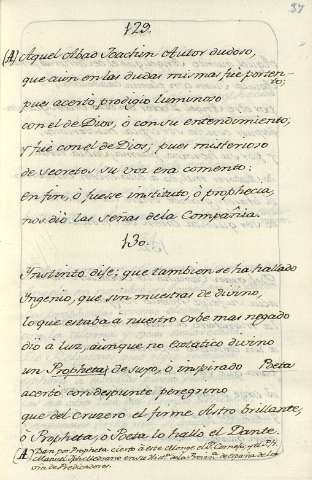 37
129.
(A) Aquel Abad Joachin Autor dudoso,
que aùn en las dudas mismas fuè porten-
to;
pues acertò, prodigio luminoso
con el de Dios, ò con su entendimiento;
y fuè con el de Dios; pues misterioso
de secretos su voz era comento:
en fin, ò fuesse instituto, ò prophecia,
nos diò las señas dela Compañia.
130.
Instinto dise; que tambien se ha hallado
Ingenio, que sin muestras de divino,
lo que estaba à nuestro orbe mas negado
diò à luz, aunque no extatico divino
un Propheta de suyo, ò inspirado Poeta
acertò con despunte peregrino
que del Cruzero el firme Astro brillante,
ò Propheta, ò Poeta lo hallò el Dante.
A Dan por Propheta cierto à este Monge el P.
en su Hist.ª dela Prov.ª de España de los
de Predicadores.